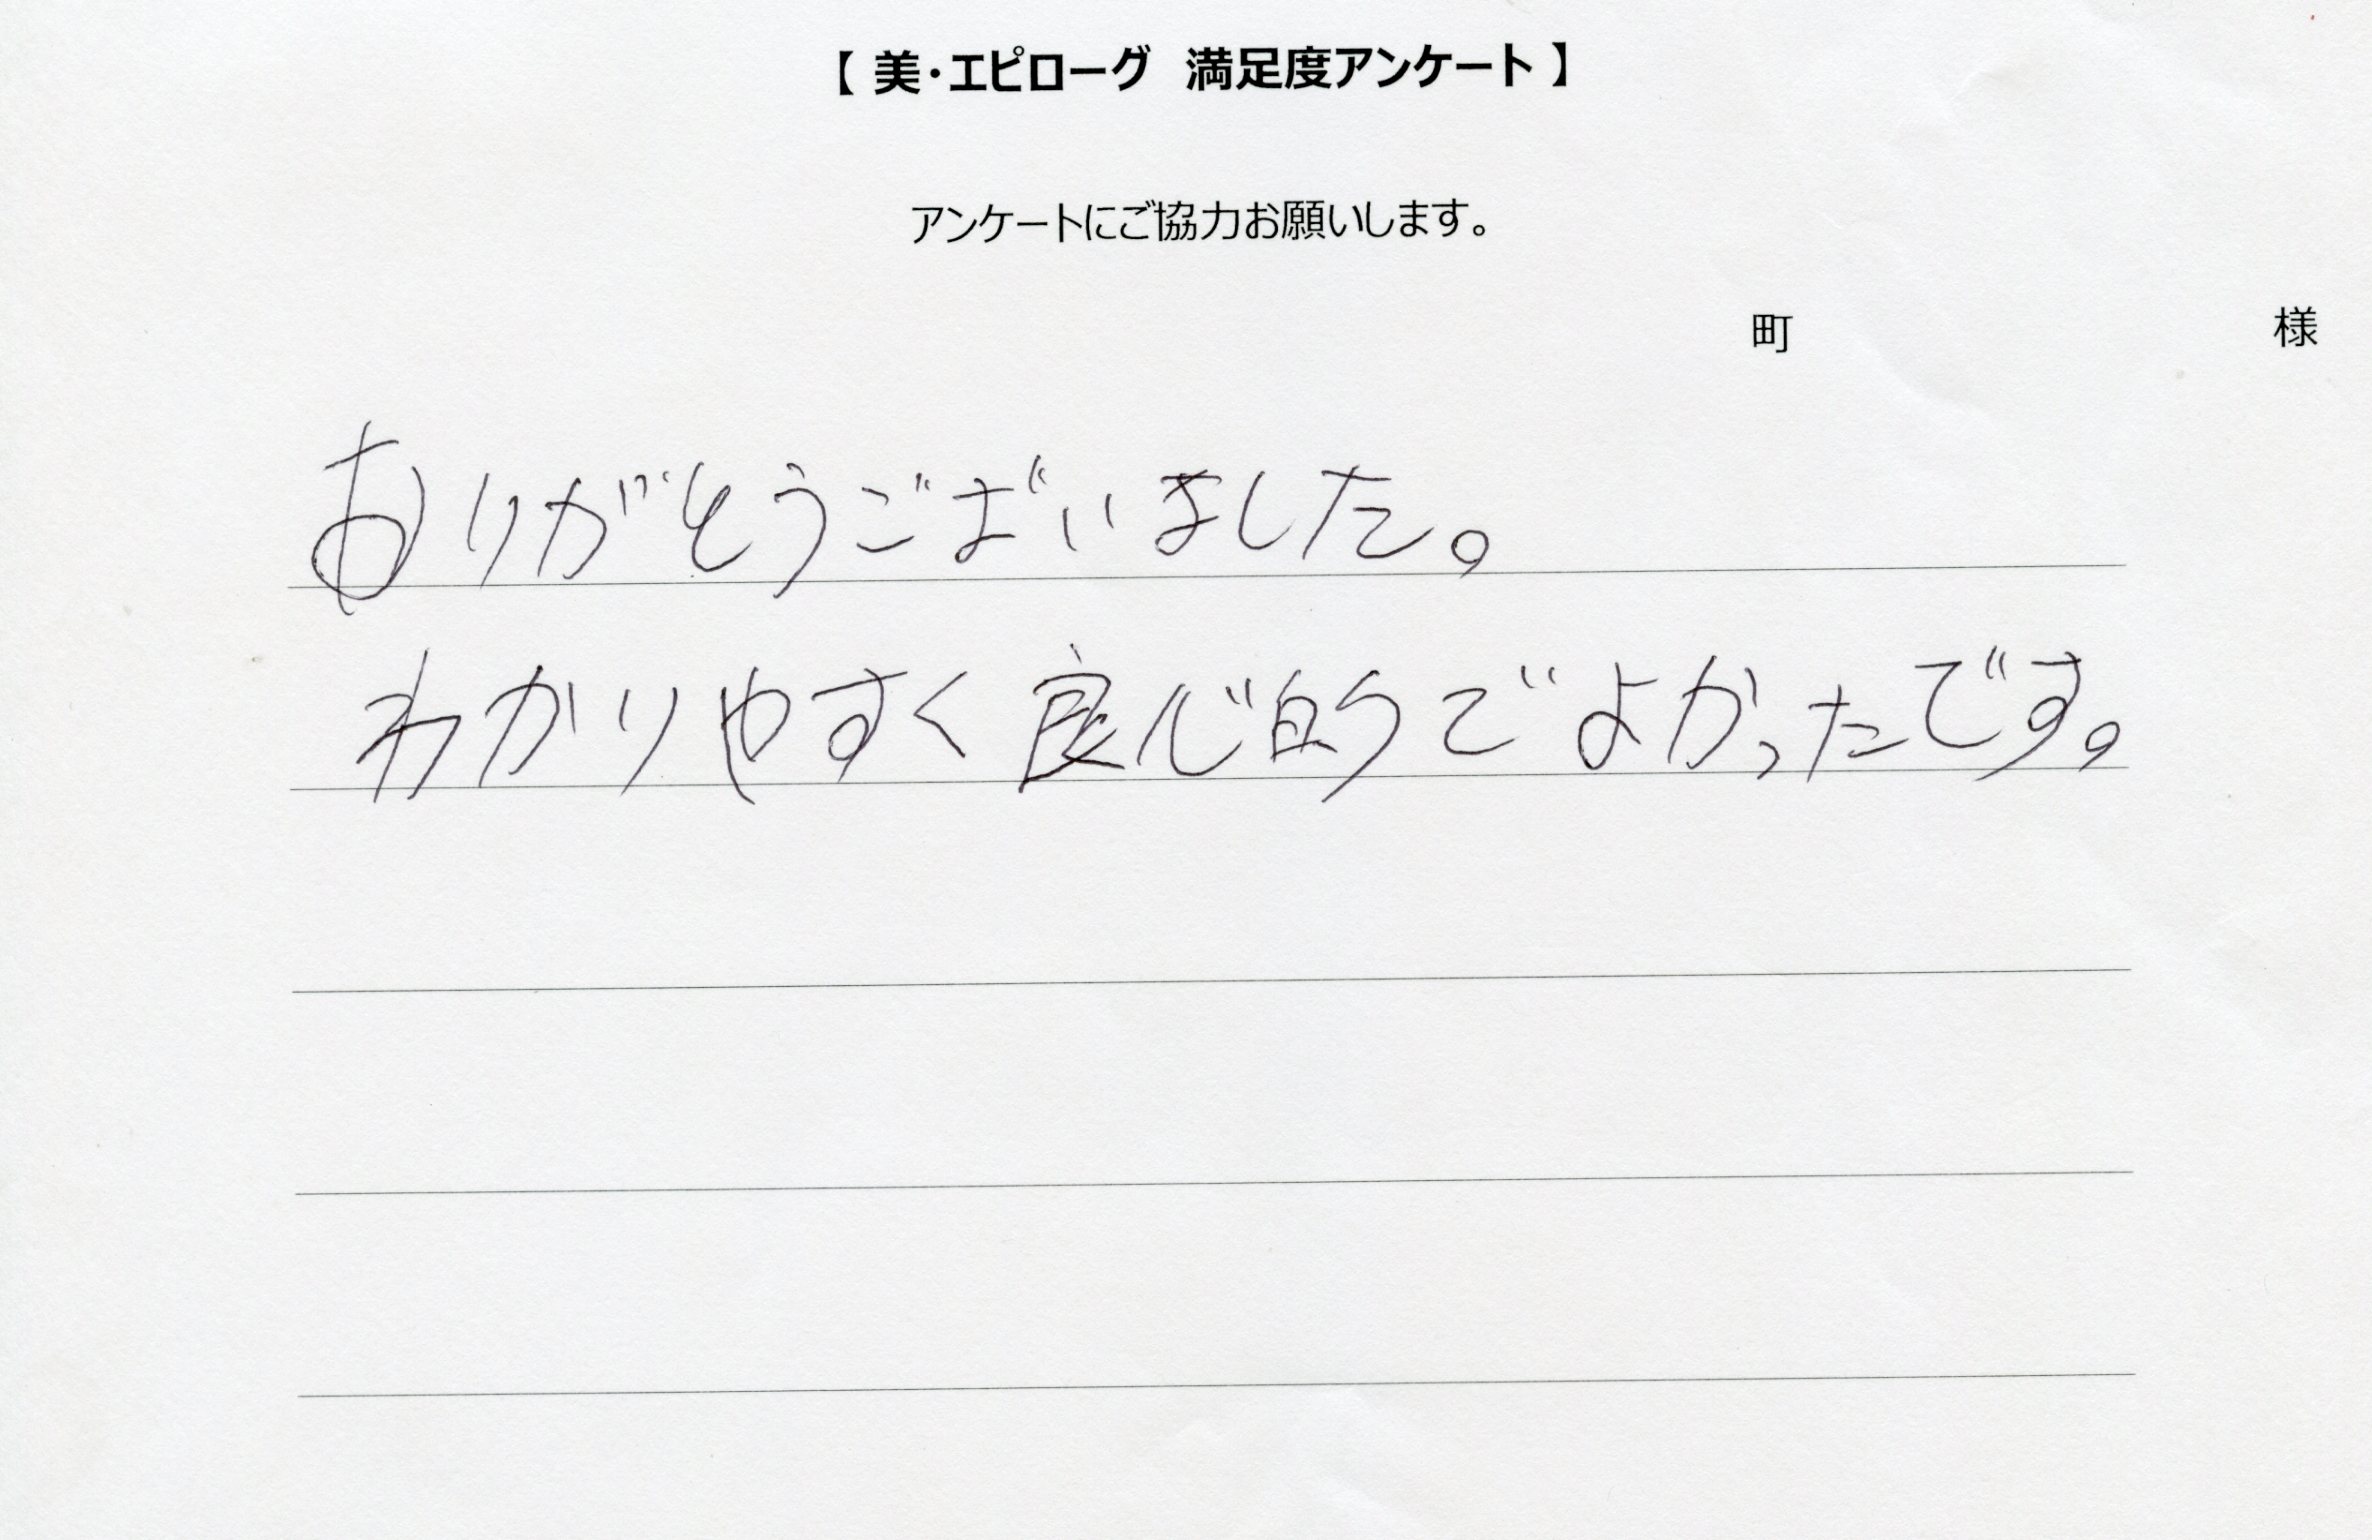 【 美・エピローグ 満足度アンケート 】
アンケートにご協力お願いします。
町 様
ありがとうございました。
わかりやすく良心的でよかったです。